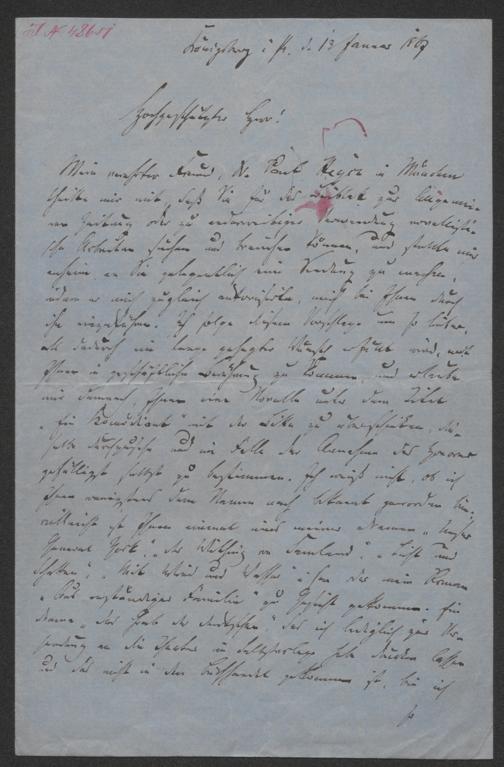 Königsberg i. Pr. d. 13 Januar 1867
Hochgeschätzter Herr!
Mein verehrter Freund, Dr. Paul Heyse in München
theilte mir mit, daß Sie für das Beiblatt zur Allgemei-
nen Zeitung oder zu anderweitiger Verwendung novellisti-
sche Arbeiten suchen und brauchen können, und stellte mir
anheim, an Sie gelegentlich eine Sendung zu machen,
indem er mich zugleich autorisirte, mich bei Ihnen durch
ihn einzuführen. Ich folge diesem Vorschlage um so lieber,
als dadurch ein lange gehegter Wunsch erfüllt wird, mit
Ihnen in geschäftliche Berührung zu kommen, und erlaube
mir demnach, Ihnen eine Novelle unter dem Titel
"Ein Komödiant" mit der Bitte zu überschicken, die-
selbe durchzusehn und im Falle der Annahme das Honorar
gefälligst selbst zu bestimmen. Ich weiß nicht, ob ich
Ihnen wenigstens dem Namen nach bekannt geworden bin.
vielleicht ist Ihnen einmal eines meiner Dramen "Unser
General York", "Der Withing von Samland", "Licht und
Schatten", "Mit Wind und Wasser" oder mein Roman
"Aus anständiger Familie" zu Gesicht gekommen. Ein
Drama, das ich lediglich zur Ver-
sendung an die Theater im Selbstverlage habe drucken lassen
und das nicht in den Buchhandel gekommen ist, bin ich
so